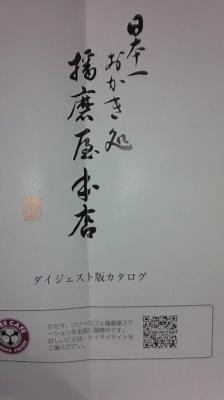 日本一
おかき処
播磨屋本店
ダイジェスト版カタログ
ただ今、フリーカフェ播磨屋ステ
ーションを全国に展開中です。
詳しいことは、ケイタイサイトを
ご覧ください。